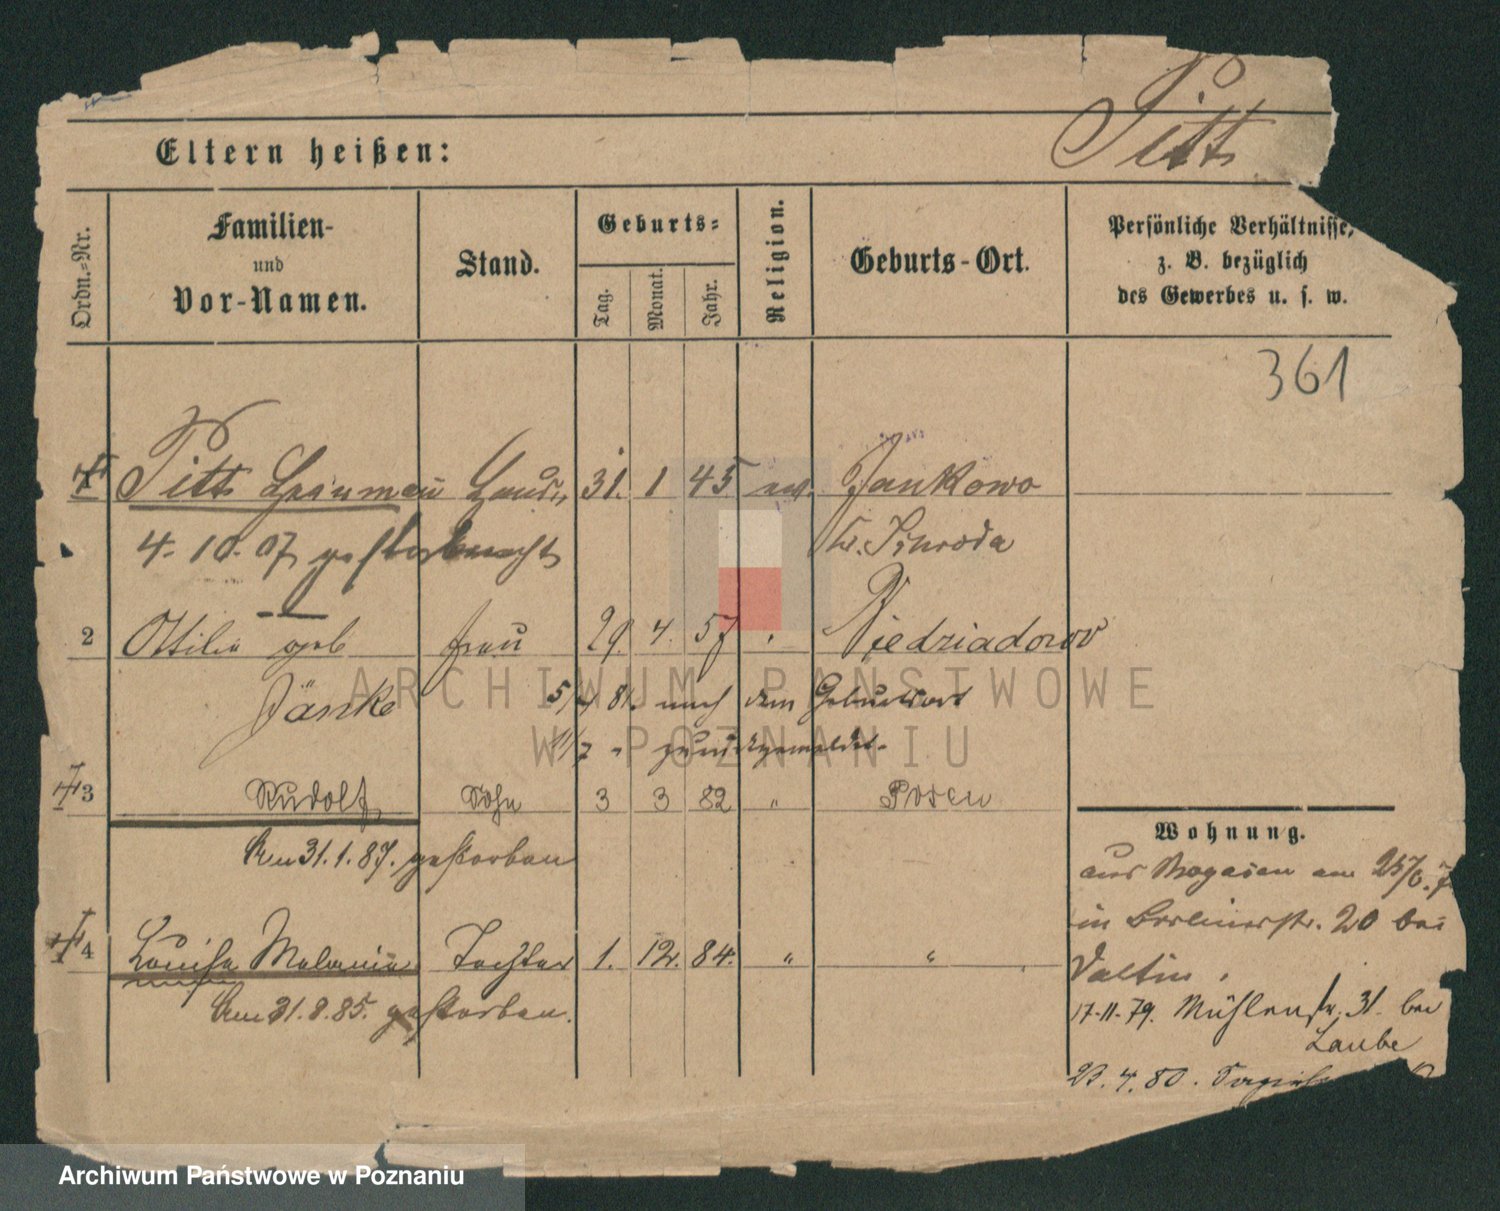 Pitt
Eltern heißen:
Ordn.-Nr.
Familien-
und
Vor-Namen.
Stand.
Geburts-
Tag.
Monat.
Jahr.
Religion.
Geburts-Ort.
Persönliche Verhältnisse,
z. B. bezüglich
des Gewerbes u. s. w.
361
Pitt Hermann 31. 1 45 ev. Jankowo
4. 10. 07 Kr. Schroda
2 Ottilie geb frau 29. 4. 57 " Niedziadowo
Jänke 5/4 81. nach dem Geburtsort
11/7 " zurückgemeldet.
3 Rudolf Sohn 3 3 82 " Posen
Am 31.1.87. gestorben
4 Louise Melanie Tochter 1. 12. 84. " "
Am 31.8.85. gestorben.
Wohnung.
aus Rogasen am 25/6. 7
in Berlinerstr. 20 bei
Valtin.
17.11.79. Mühlenstr. 31. bei
Laube
23.4.80.
ARCHIWUM PAŃSTWOWE
W POZNANIU
Archiwum Państwowe w Poznaniu